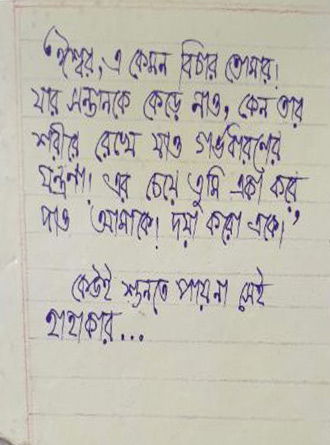 'ঈশ্বর, এ কেমন বিচার তোমার!
যার সন্তানকে কেড়ে নাও, কেন তার
শরীরে রেখে যাও গর্ভধারণের
যন্ত্রনা! এর চেয়ে তুমি একা করে
দাও আমাকে! দয়া করো একে!'
কেউই শুনতে পায়না সেই
হাহাকার...